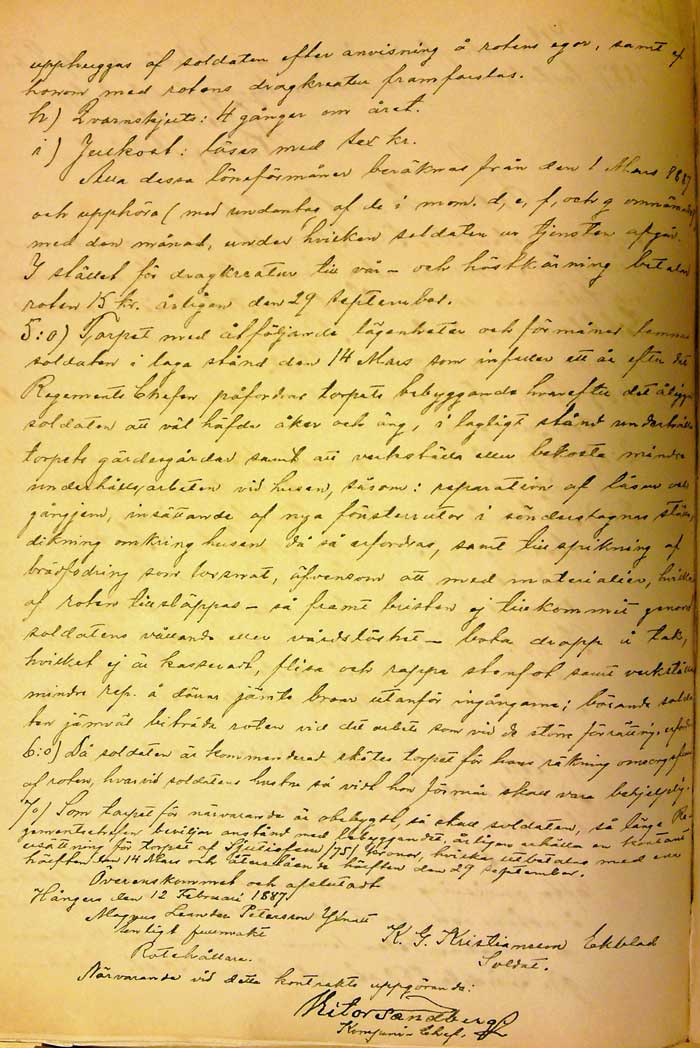 upphuggas af soldaten efter anvisning å rotens egor, samt af
honom med rotens dragkreatur framforslas.
h) Qvarnskjuts: 4 gånger om året.
i) Julkost: löses med sex kr.
Alla dessa löneförmåner beräknas från den 1 Mars 1887
och upphöra (med undantag af de i mom. d, e, f, och g omnämnda)
med den månad, under hvilken soldaten ur tjensten afgår.
I stället för dragkreatur till vår- och höstkörning betalar
roten 15 kr. årligen den 29 september.
5:o) Torpet med åtföljande lägenheter och förmåner lemnas
soldaten i laga stånd den 14 Mars som infaller ett år efter det
Regements Chefen påfordrar torpets bebyggande hvarefter det åligger
soldaten att väl häfda åker och äng, i lagligt stånd underhålla
torpets gärdesgårdar samt att verkställa eller bekosta mindre
underhållsarbeten vid husen, såsom: reparation af låsar och
gångjern, insättande af nya fönsterrutor i sönderslagnas ställe,
dikning omkring husen då så erfordras, samt tillspikning af
brädfodring som lossnat, äfvensom att med materialier, hvilka
af roten tillsläppas - så framt bristen ej tillkommit genom
soldatens vållande eller vårdslöshet - bota dropp å tak,
hvilket ej är kasseradt, flisa och rappa stenfot samt verkställa
mindre rep. å dörrar jämte broar utanför ingångarne; börande solda
ten jämväl biträda roten vid det arbete som vid de större förrättnig. erfordras
6:o) Då soldaten är kommenderad skötes torpet för hans räkning omsorgsfullt
af roten, hvarvid soldatens hustru så vidt hon förmår skall vara behjelplig.
7:o) Som torpet för närvarande är obebygdt, så skall soldaten, så länge Re-
gementschefen beviljar anstånd med bebyggandet, årligen erhålla en kontant
ersättning för torpet af Sjuttiofem (75) kronor, hvilka utbetalas med ena
hälften den 14 Mars och återstående hälften den 29 september.
Överenskommet och afslutadt
Hångers den 12 Februari 1887.
Magnus Leander Petersson
Enligt fullmakt
Rotehållare.
K. G. Kristiansson Ekblad
Soldat.
Närvarande vid detta kontrakts uppgörande:
Victor Sandberg
Kompani-Chef.